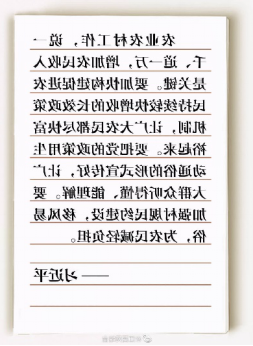 农业农村工作，说一
千、道一万，增加农民收入
是关键。要加快构建促进农
民持续较快增收的长效政策
机制，让广大农民都尽快富
裕起来。要把党的政策用生
动通俗的形式宣传好，让广
大群众听得懂、能理解。要
加强村规民约建设，移风易
俗，为农民减轻负担。
——习近平